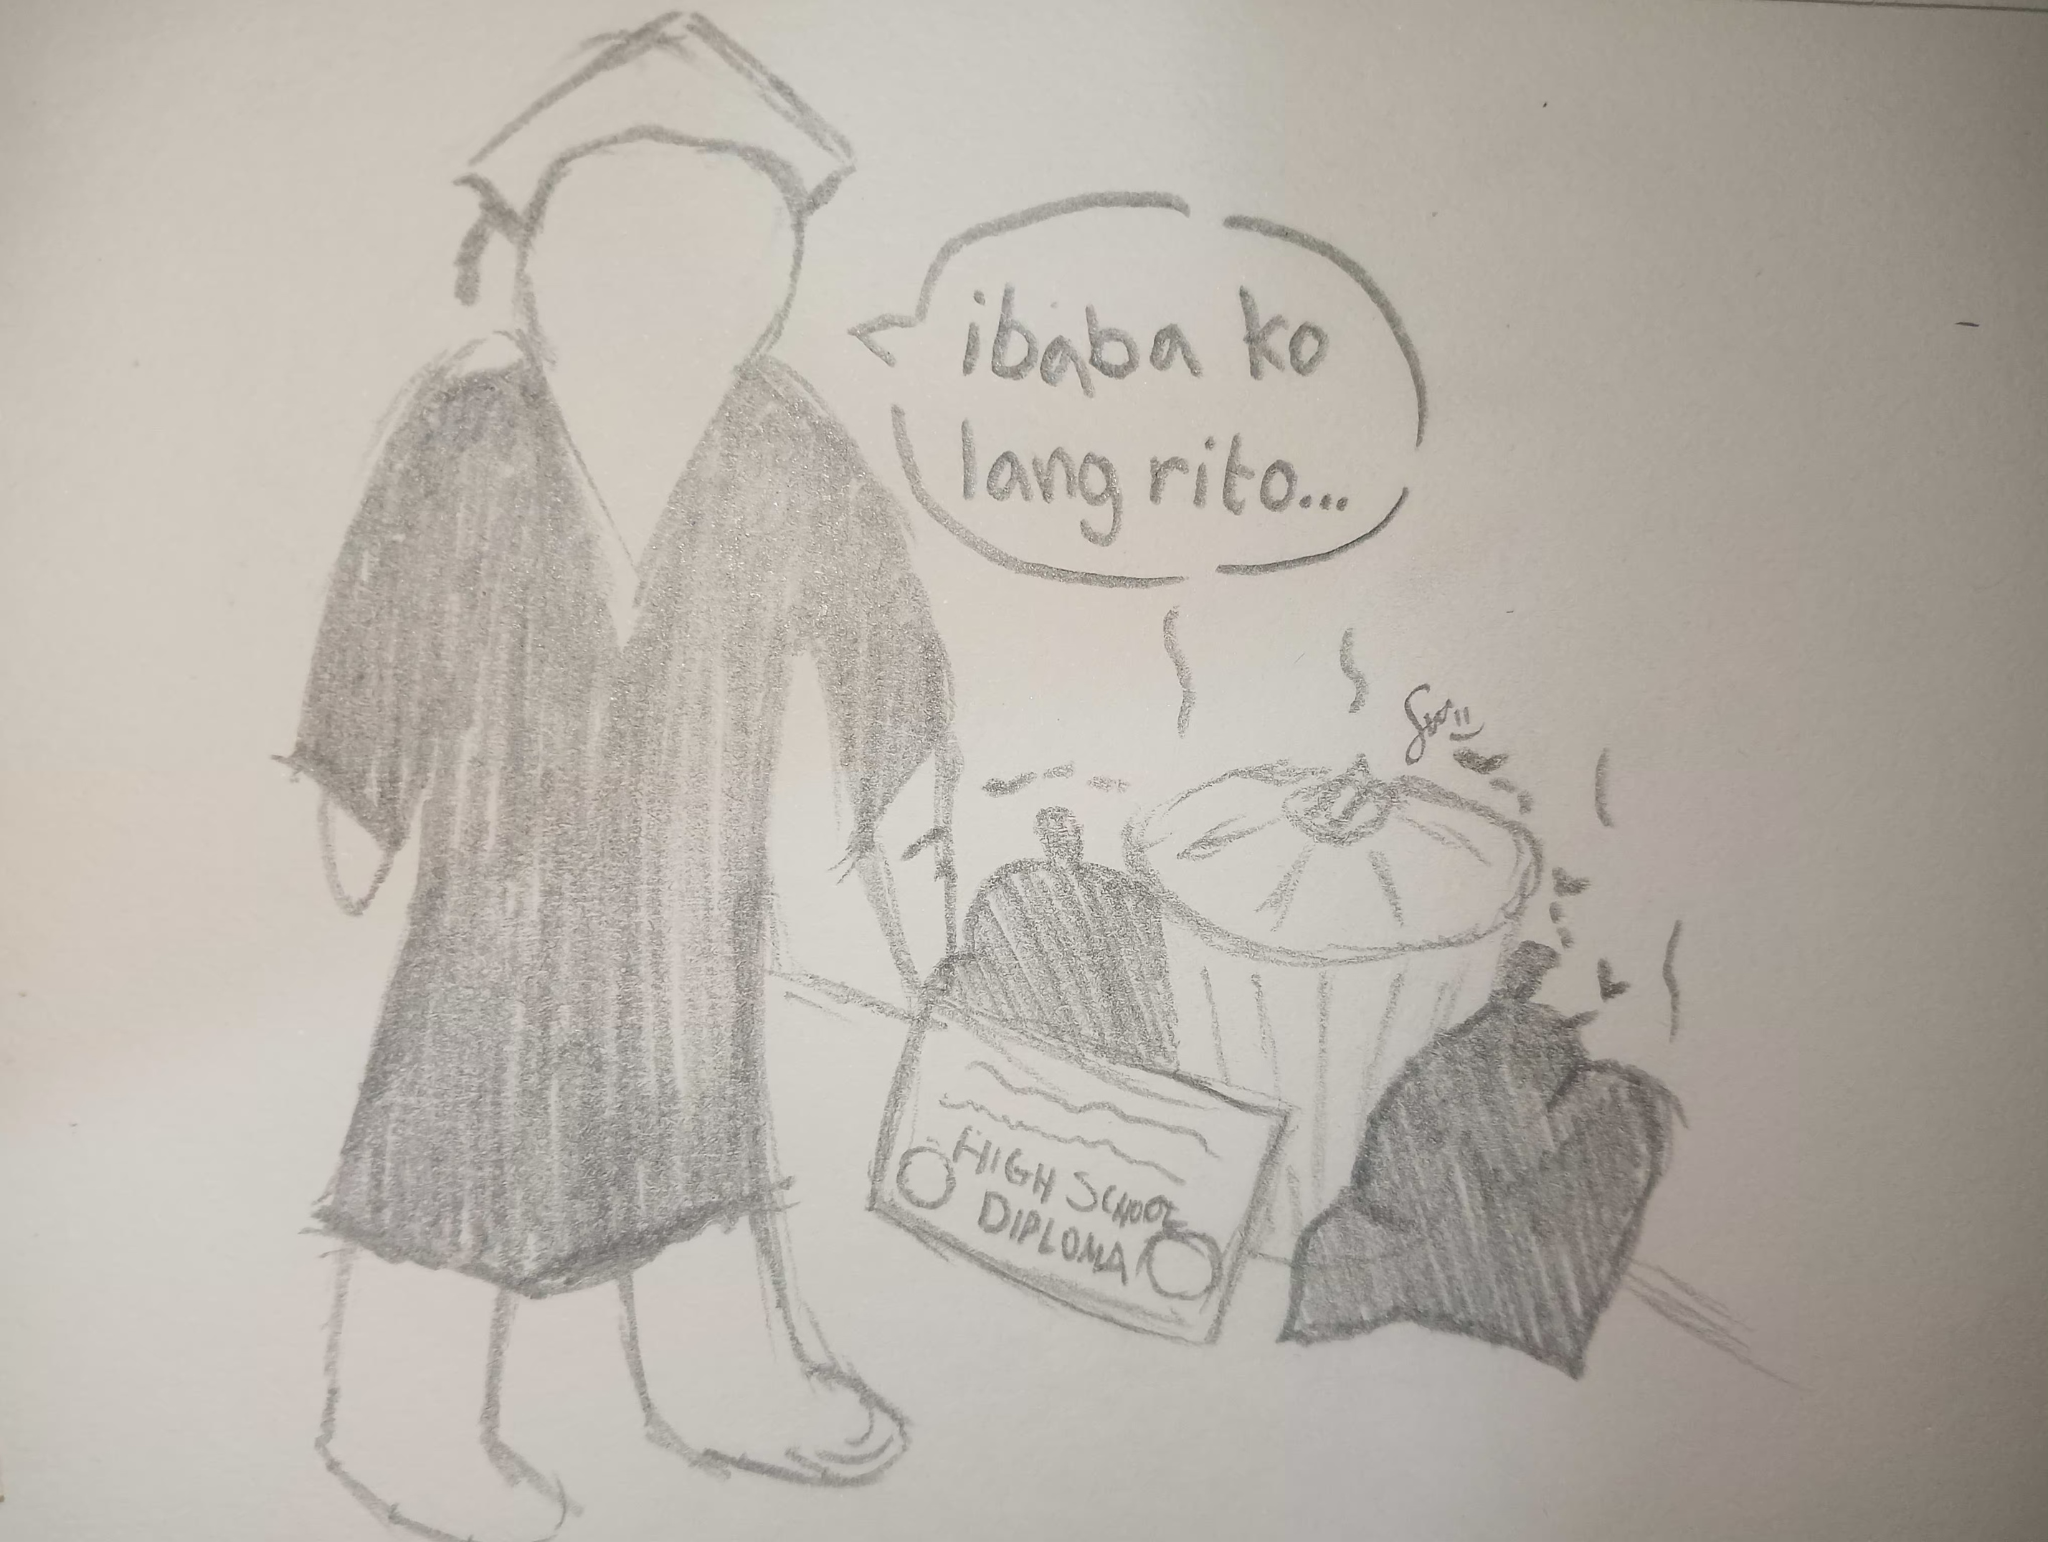 ibaba ko
lang rito...
HIGH SCHOOL
DIPLOMA